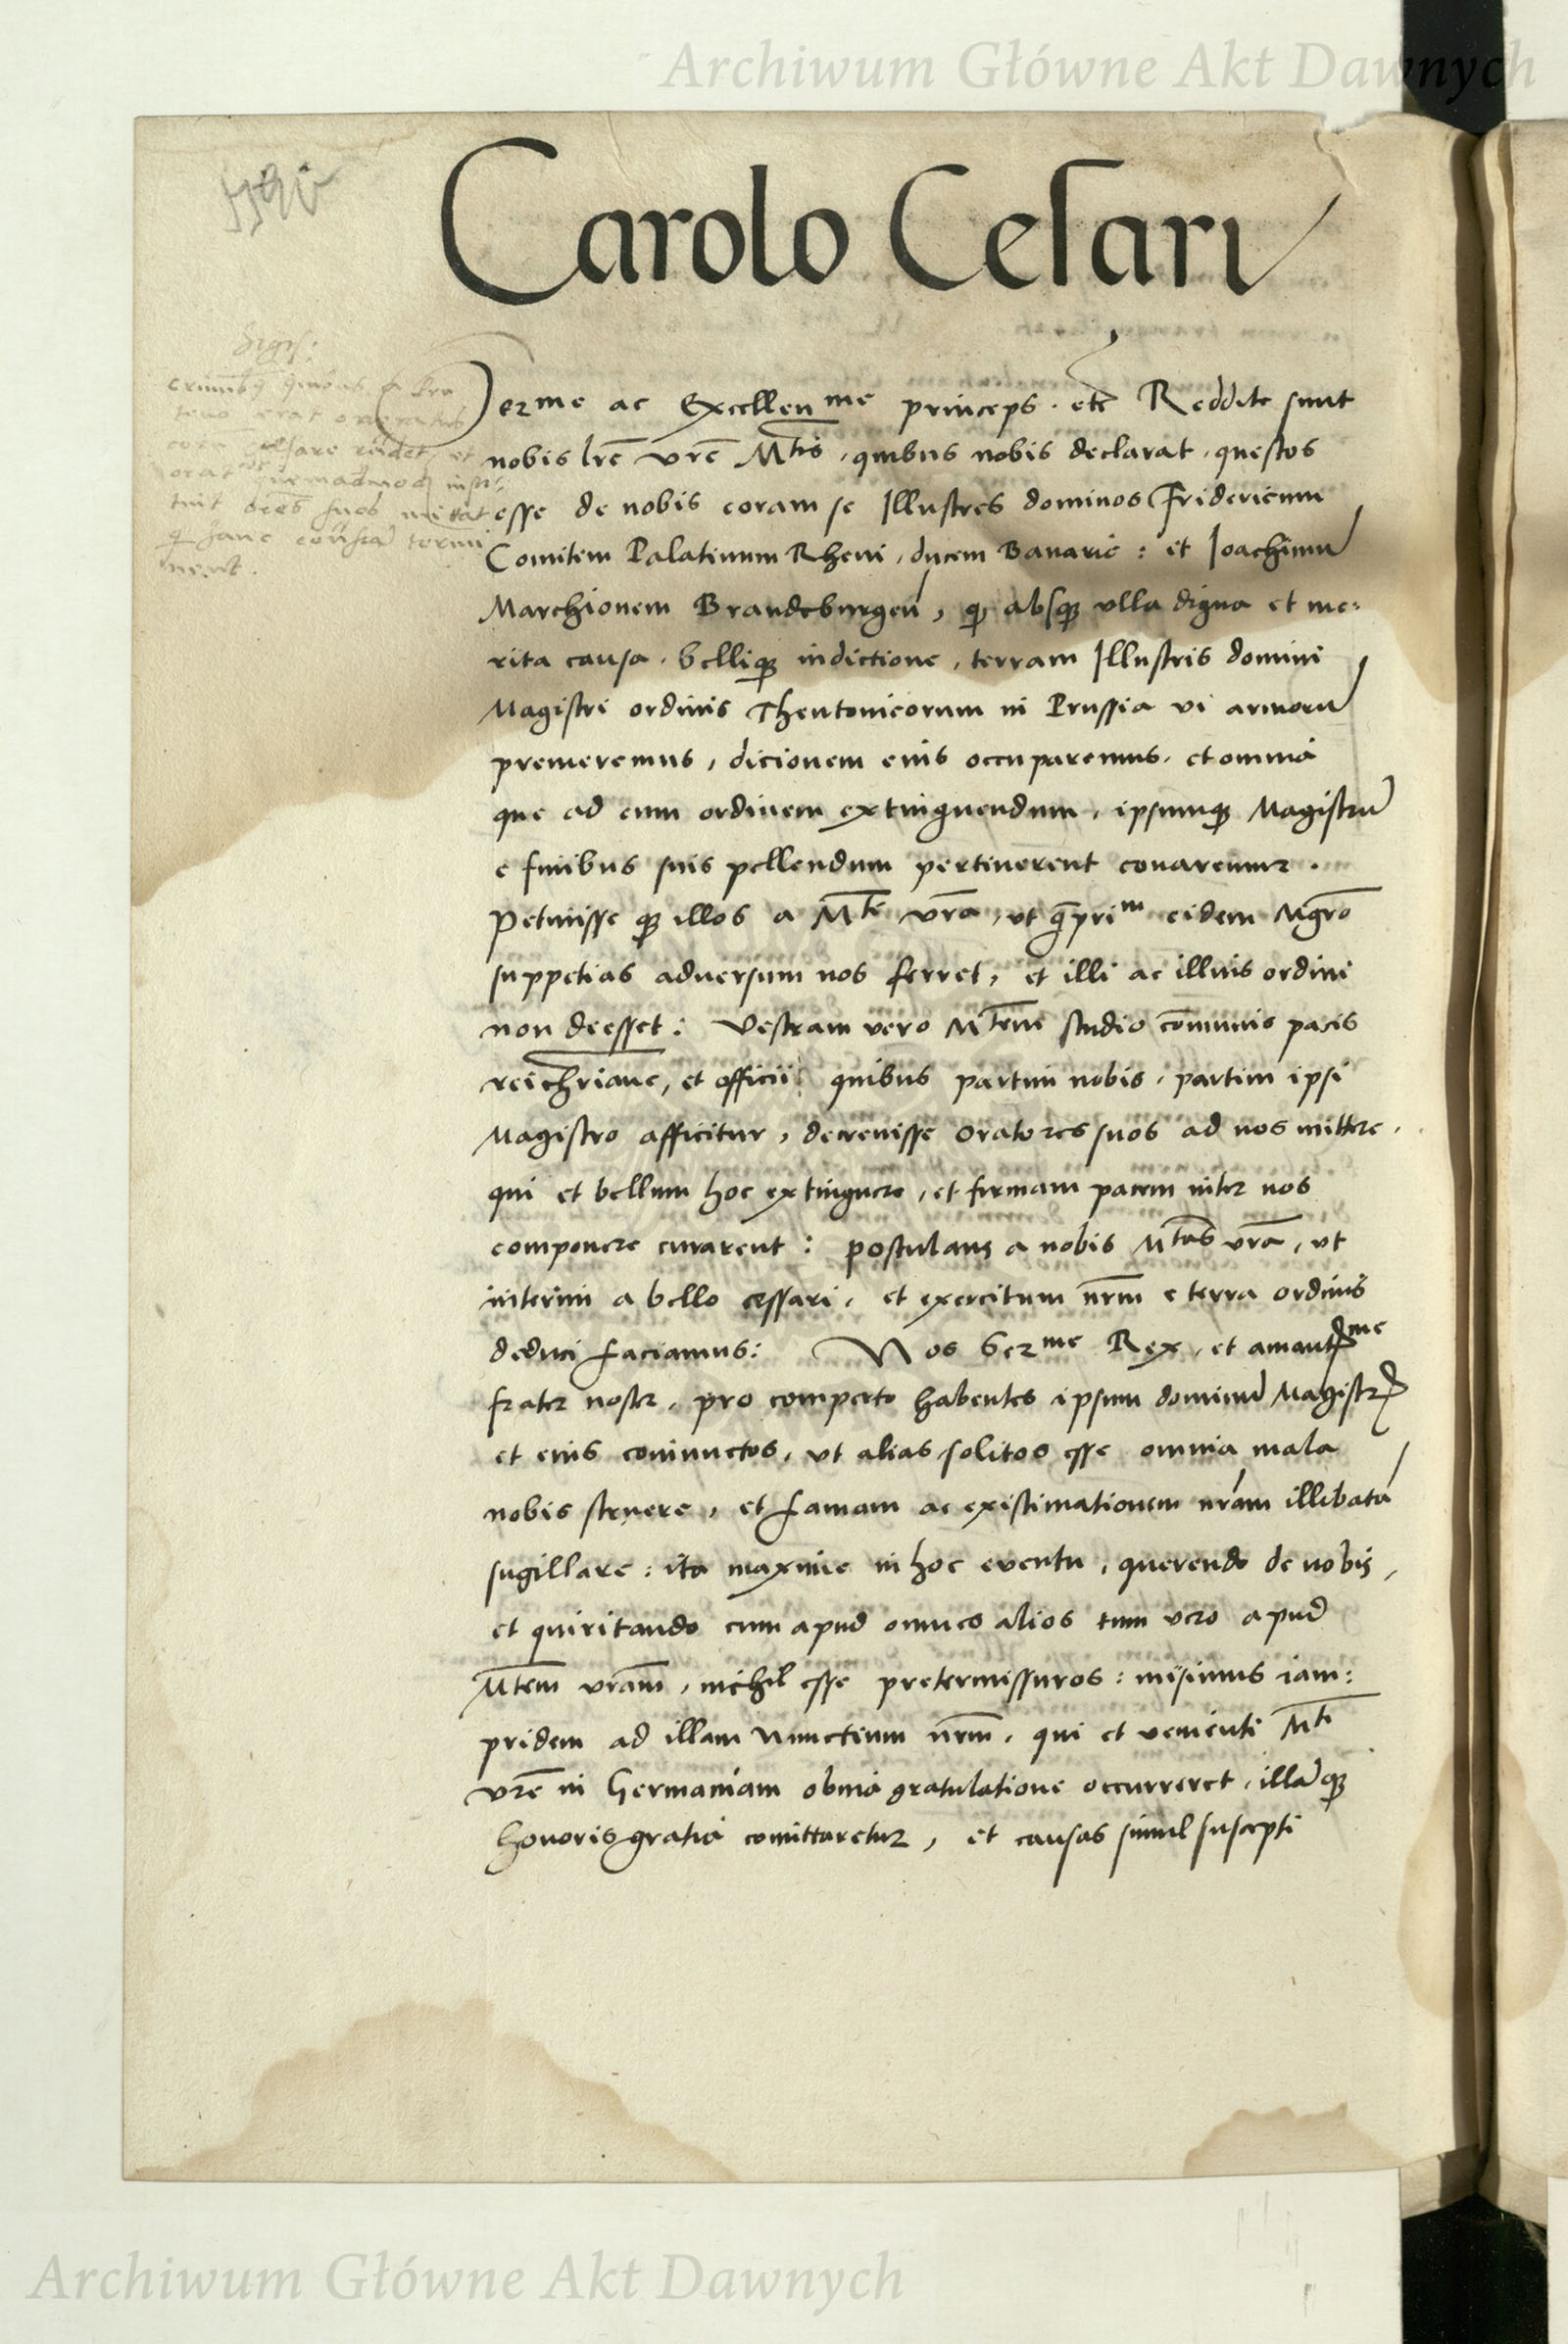 Archiwum Główne Akt Dawnych
Carolo Cesari
Sigis:
Serme ac Excellenme princeps. etc Reddite sunt
nobis lre vre Mtis, quibus nobis declarat, questos
esse de nobis coram se Illustres dominos Fridericum
Comitem Palatinum Rheni, ducem Bavarie: et Joachimu
Marchionem Brandeburgen, q absq ulla digna et me:
rita causa, belliq indictione, terram Illustris domini
Magistri ordinis Theutonicorum in Prussia vi armoru
premeremus, dicionem eius occuparemus, et omnia
que ad eum ordinem extinguendum, ipsumq Magistru
e finibus suis pellendum pertinerent conaremur.
Petiuisse q illos a Mte vra, ut qprim eidem Mgro
suppetias adversum nos ferret, et illi ac illius ordini
non deesset: Vestram vero Mtem studio communis pacis
rei chriane, et officii quibus partim nobis, partim ipsi
Magistro afficitur, decrevisse oratores suos ad nos mittere,
qui et bellum hoc extinguere, et firmam pacem inter nos
componere curarent: postulans a nobis Mtas vra, ut
interim a bello cessari, et exercitum nrm e terra ordinis
deduci faciamus: Nos Serme Rex, et amantme
frater noster, pro comperto habentes ipsum dominu Magistr
et eius coniunctos, ut alias solitos esse omnia mala
nobis struere, et famam ac existimationem nram illibata
sugillare: ita maxime in hoc eventu, querendo de nobis,
et quiritando cum apud omnes alios tum vero apud
Mtem vram, nichil esse pretermissuros: misimus iam:
pridem ad illam Nunctium nrm, qui et venienti Mti
vre in Germaniam obvia gratulatione occurreret, illaq
honoris gratia comittaretur, et causas simul suscepti
Archiwum Główne Akt Dawnych